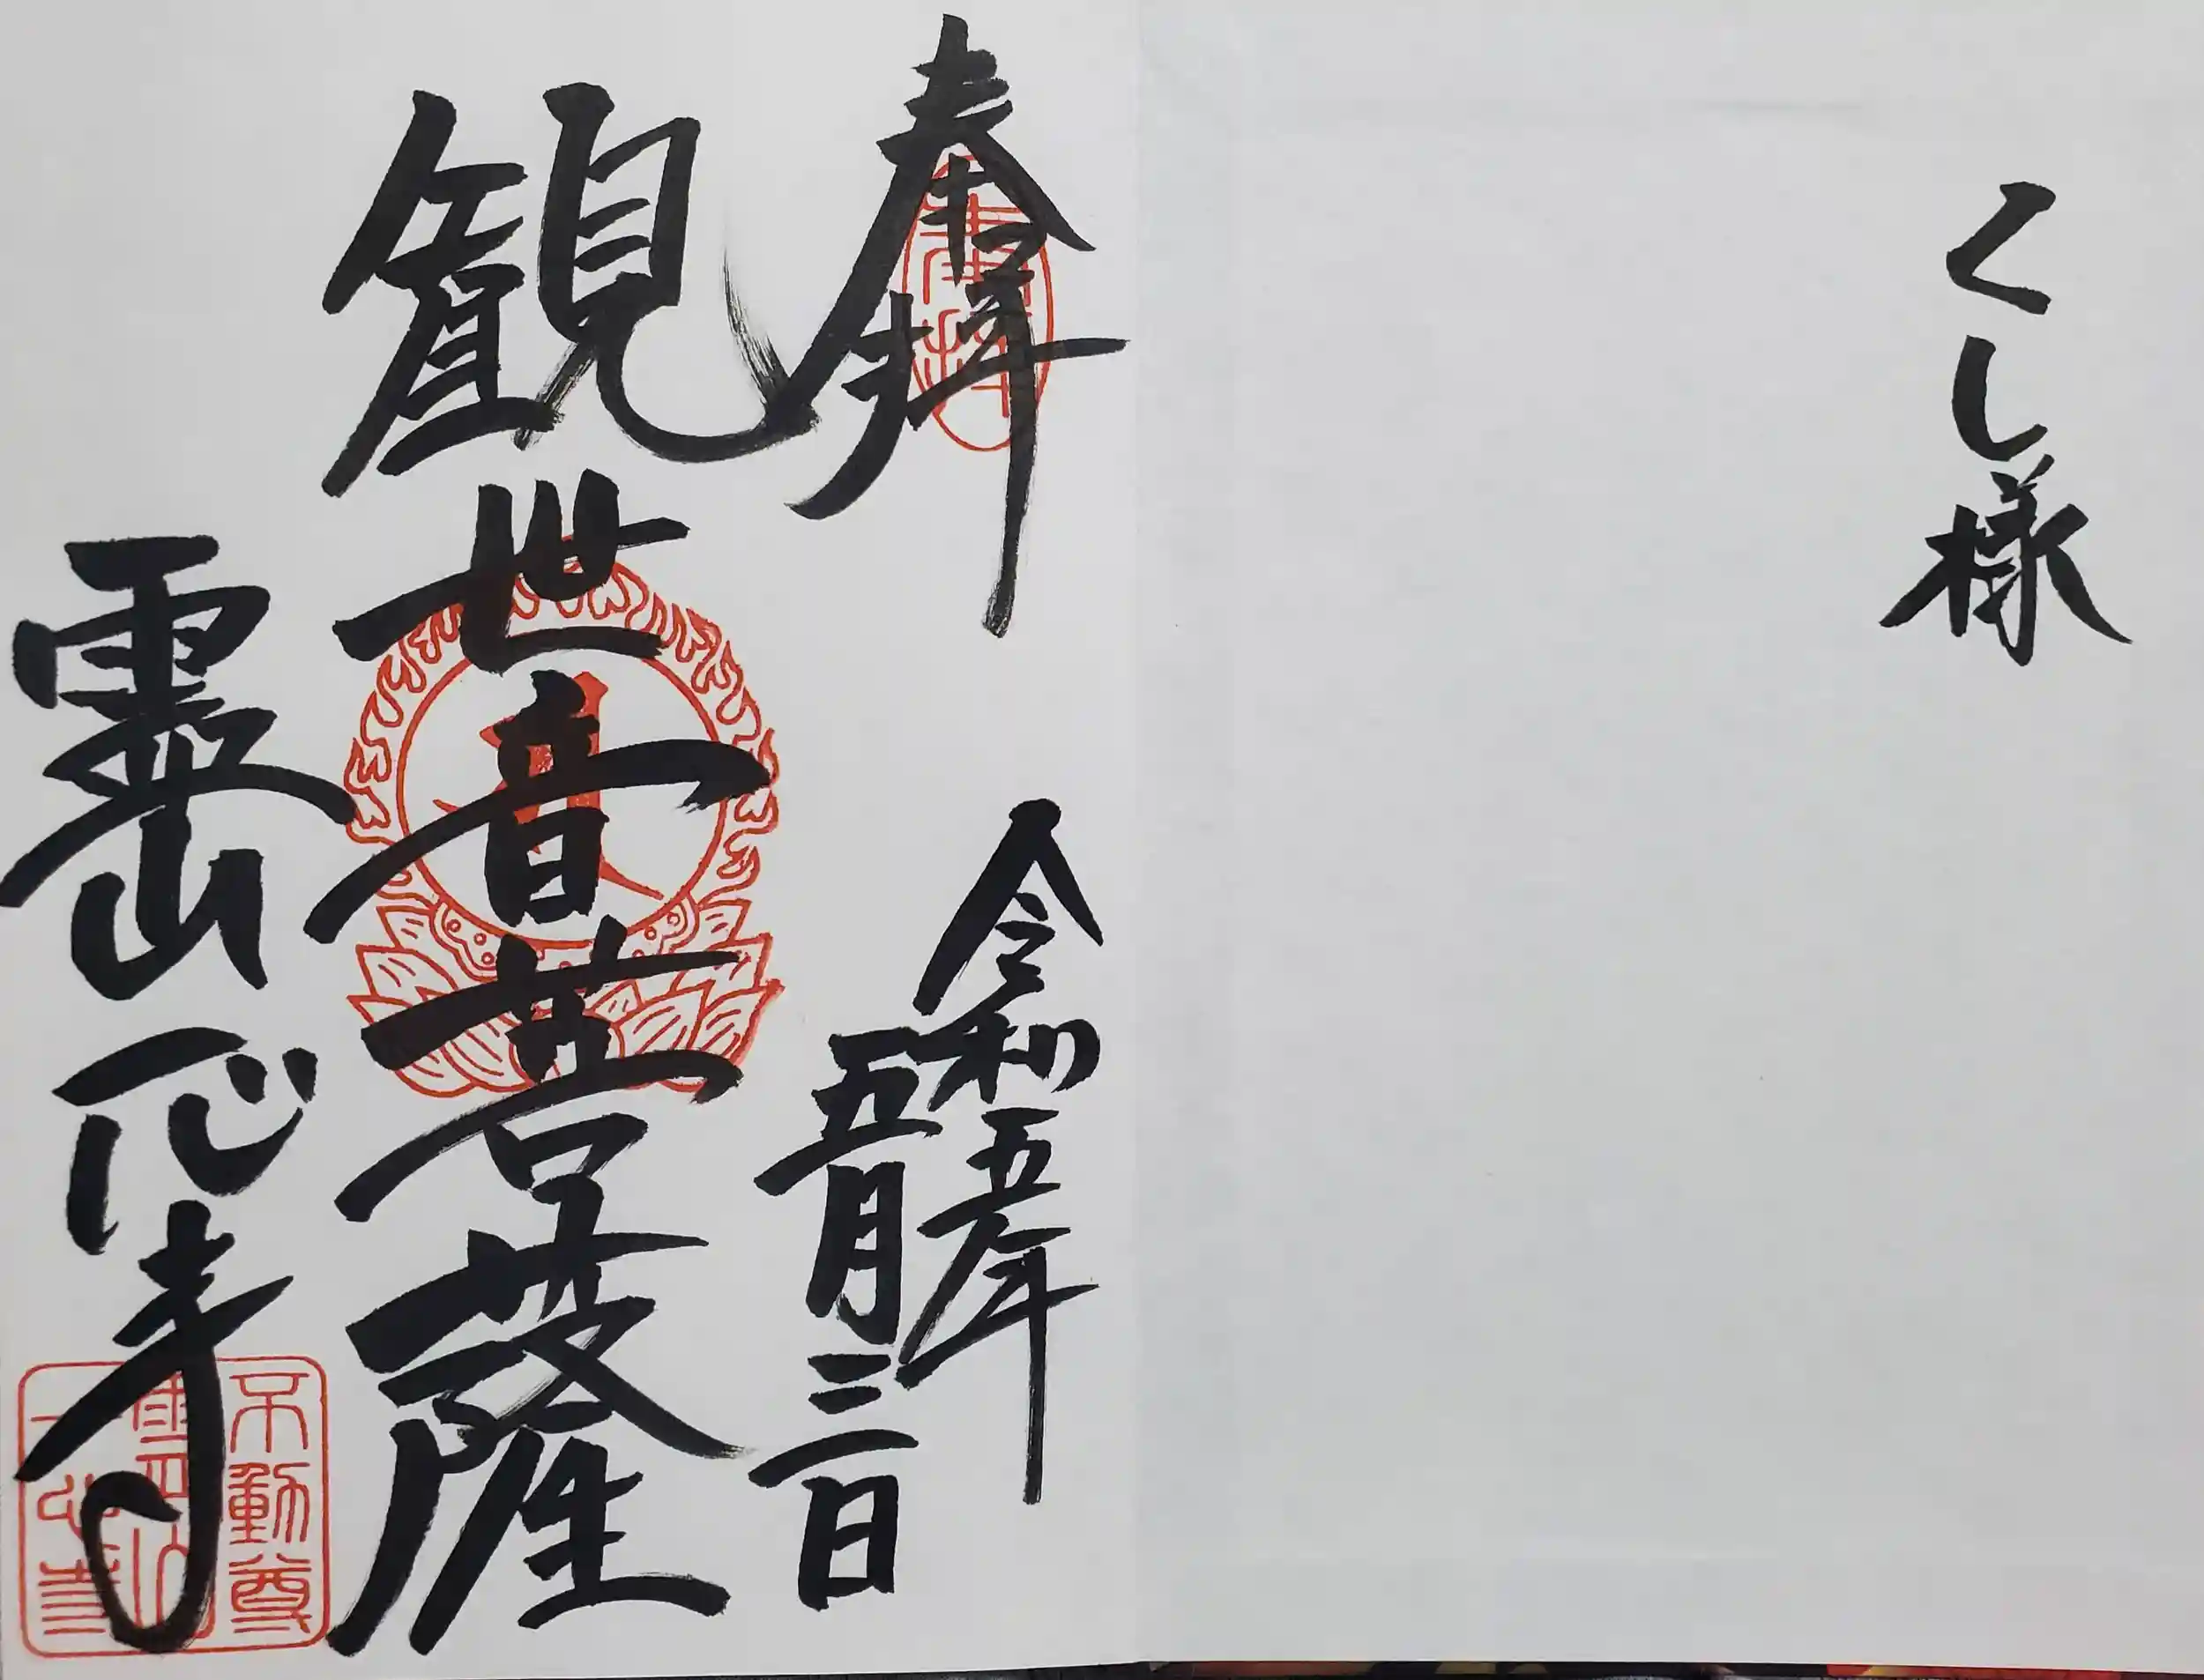 くし様
奉拝
令和五年
五月三日
観世音菩薩
霊山
不動尊